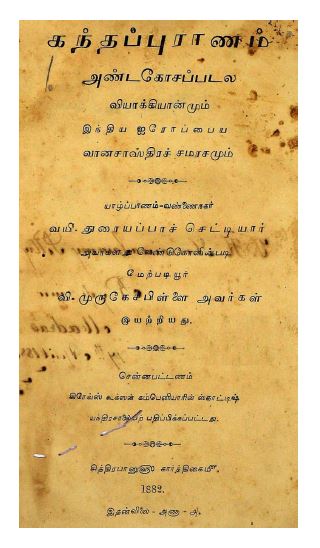 கந்தப்புராணம்
அண்டகோசப்படல
வியாக்கியானமும்
இந்திய ஐரோப்பைய
வானசாஸ்திரச் சமரசமும்
யாழ்ப்பாணம்-வண்ணைநகர்
வயி-துரையப்பாச் செட்டியார்
அவர்களது வேண்டுகோளின்படி
மேற்படியூர்
வி-முருகேசபிள்ளை அவர்கள்
இயற்றியது.
சென்னபட்டணம்
கிரேவ்ஸ் குக்ஸன் கம்பெனியாரின் ஸ்காட்டிஷ்
யந்திரசாலையிற் பதிப்பிக்கப்பட்டது.
சித்திரபானு௵ கார்த்திகை௴.
1882.
இதன்விலை - அணா - அ.